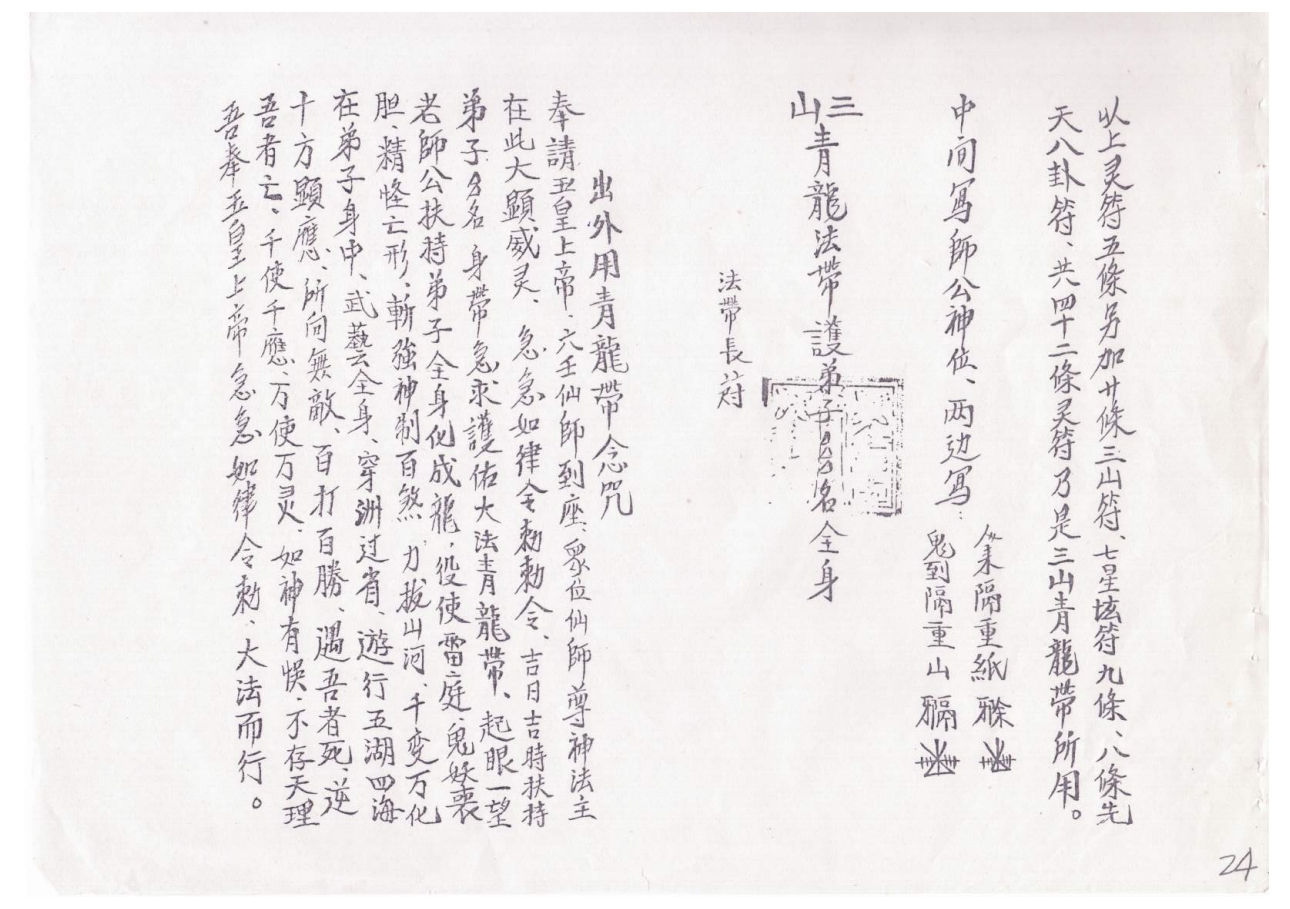 以上灵符五條另加廿條三山符、七星垓符九條、八條先
天八卦符、共四十二條灵符乃是三山青龍帶所用。
中间寫師公神位、两边寫：
隔重紙
鬼到隔重山
三山青龍法帶護弟子名全身
法帶長
出外用青龍帶念咒
奉請玉皇上帝、六壬仙師到座、眾位仙師尊神法主
在此大顯威灵、急急如律令勅勅令、吉日吉時扶持
弟子名身帶急求護佑大法青龍帶、起眼一望
老師公扶持弟子全身化成龍，役使雷庭，鬼妖丧
胆、精怪亡形、斬強神制百煞、力拔山河、千变万化
在弟子身中、武藝全身、穿洲过省、遊行五湖四海
十方顯應、所向無敵、百打百勝、遇吾者死、逆
吾者亡、千使千應、万使万灵、如神有悮、不存天理
吾奉玉皇上帝急急如律令勅、大法而行。
24